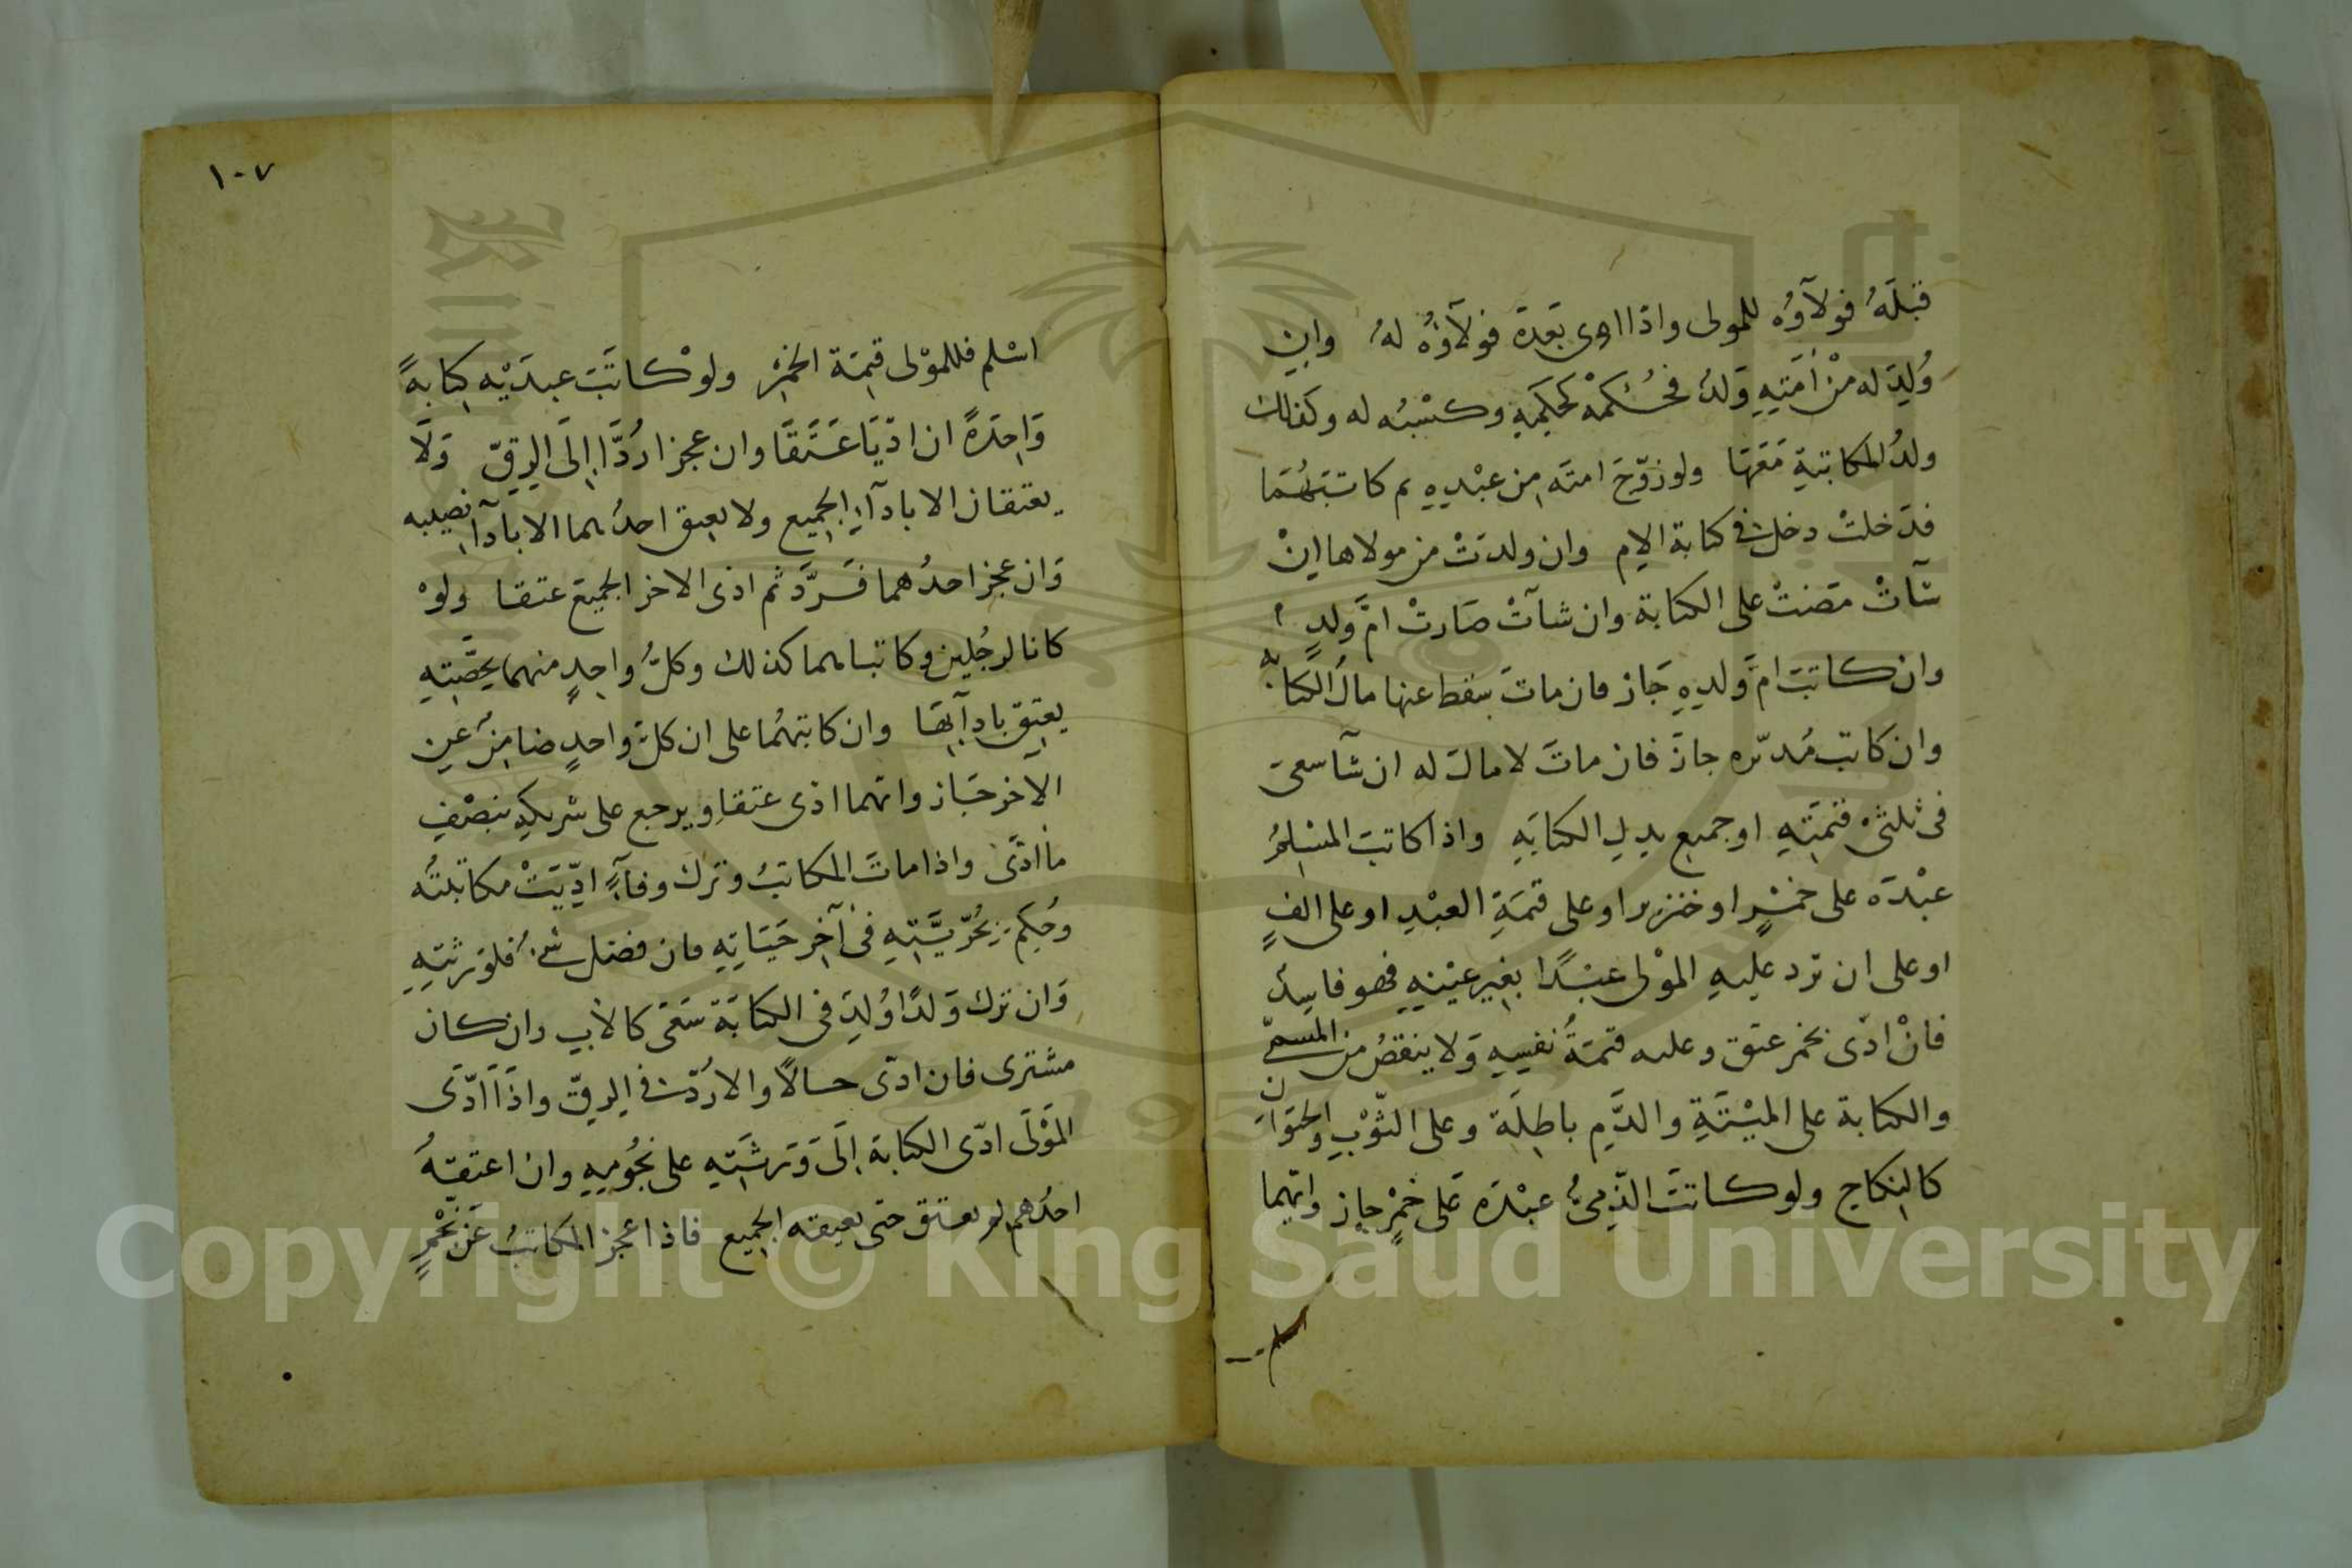 قبلَهُ فولآؤه للمولى واذا ادى بعَده فولآؤهُ لهُ وان
وُلِدَ له منْ اَمَتِهِ وَلدٌ فحُكمهُ كحكمِهِ وكسْبُه له وكذلك
ولدُ المكاتبةِ مَعَهَا ولو زوّجَ امتَه من عبْدِهِ ثم كاتبَهُمَا
فدَخلتْ دخل في كتابة الام وان ولدتْ من مولاها انْ
شآتْ مضتْ على الكتابة وان شآتْ صَارتْ امَّ وَلدٍ
وان كاتبَ امَّ وَلدِهِ جَاز فان ماتَ سقط عنها مالُ الكتابة
وان كاتب مُدبّره جازَ فان ماتَ لا مالَ له ان شآ سعى
فى ثلثىْ قيمَتِهِ او جميع بدلِ الكتابَةِ واذا كاتبَ المسْلمُ
عبْدَه على خمْرٍ او خنزير او على قيمَةِ العبْدِ او على الفٍ
او على ان ترد عليهِ الموْلى عبْدًا بغيرِ عيْنِهِ فهو فاسِدٌ
فانْ ادّى الخمر عتق وعليه قيمَةُ نفسِهِ وَلا ينقصُ من المسمىّ
والكتابة على الميْتَةِ والدَّمِ باطِلَة وعلى الثّوْبِ والحيَوَان
كالنِكاحِ ولو كاتبَ الذِّمىُّ عبْدَه عَلى خمْرٍ جاز وايّهما
١٠٧
اسْلم فللموْلى قيمَة الخمْرِ ولوْ كاتَبَ عبدَيْه كتابةً
وَاحِدَةً ان ادّيَا عَتَقَا وان عجزا رُدَّا اِلَى الرِقِّ وَلَا
يعتقان الا بادآءِ الجميع ولا يعتق احدُهما الا بادآء نصيبه
وَان عجز احدُهما فَرُدَّ ثم ادى الاخر الجميعَ عتقا ولوْ
كانا لرجُلين وكاتباهما كذلك وكلُّ واحِدٍ منهما بحصَّتِهِ
يعتِق بادآئهَا وان كاتبَهُما على ان كلَّ واحدٍ ضامِنٌ عن
الاخر جَاز وايّهما ادى عتقا ويرجع على شريكِهِ بنصْفِ
ما ادَّى واذا ماتَ المكاتبُ وترك وفآءً ادِّيَتْ مكاتبتُه
وحُكِم بحُرّيَّتِهِ فى آخر حَيَاتِهِ فان فضل شئ فلوَرثتِهِ
وَان ترك وَلدًا وُلِدَ فى الكتابَة سَعَى كالأبِ وان كان
مشترى فان ادّى حالاً والا رُدّ في الرِقّ واذَا ادَّى
المَوْلَى ادّى الكتابةَ اِلَى وَرَثَتِهِ على نجُومِهِ وان اعتقهُ
احدُهم لم يعتق حتى يعتقه الجميع فاذا عجز المكاتبُ عَن نجْمٍ
Copyright © King Saud University